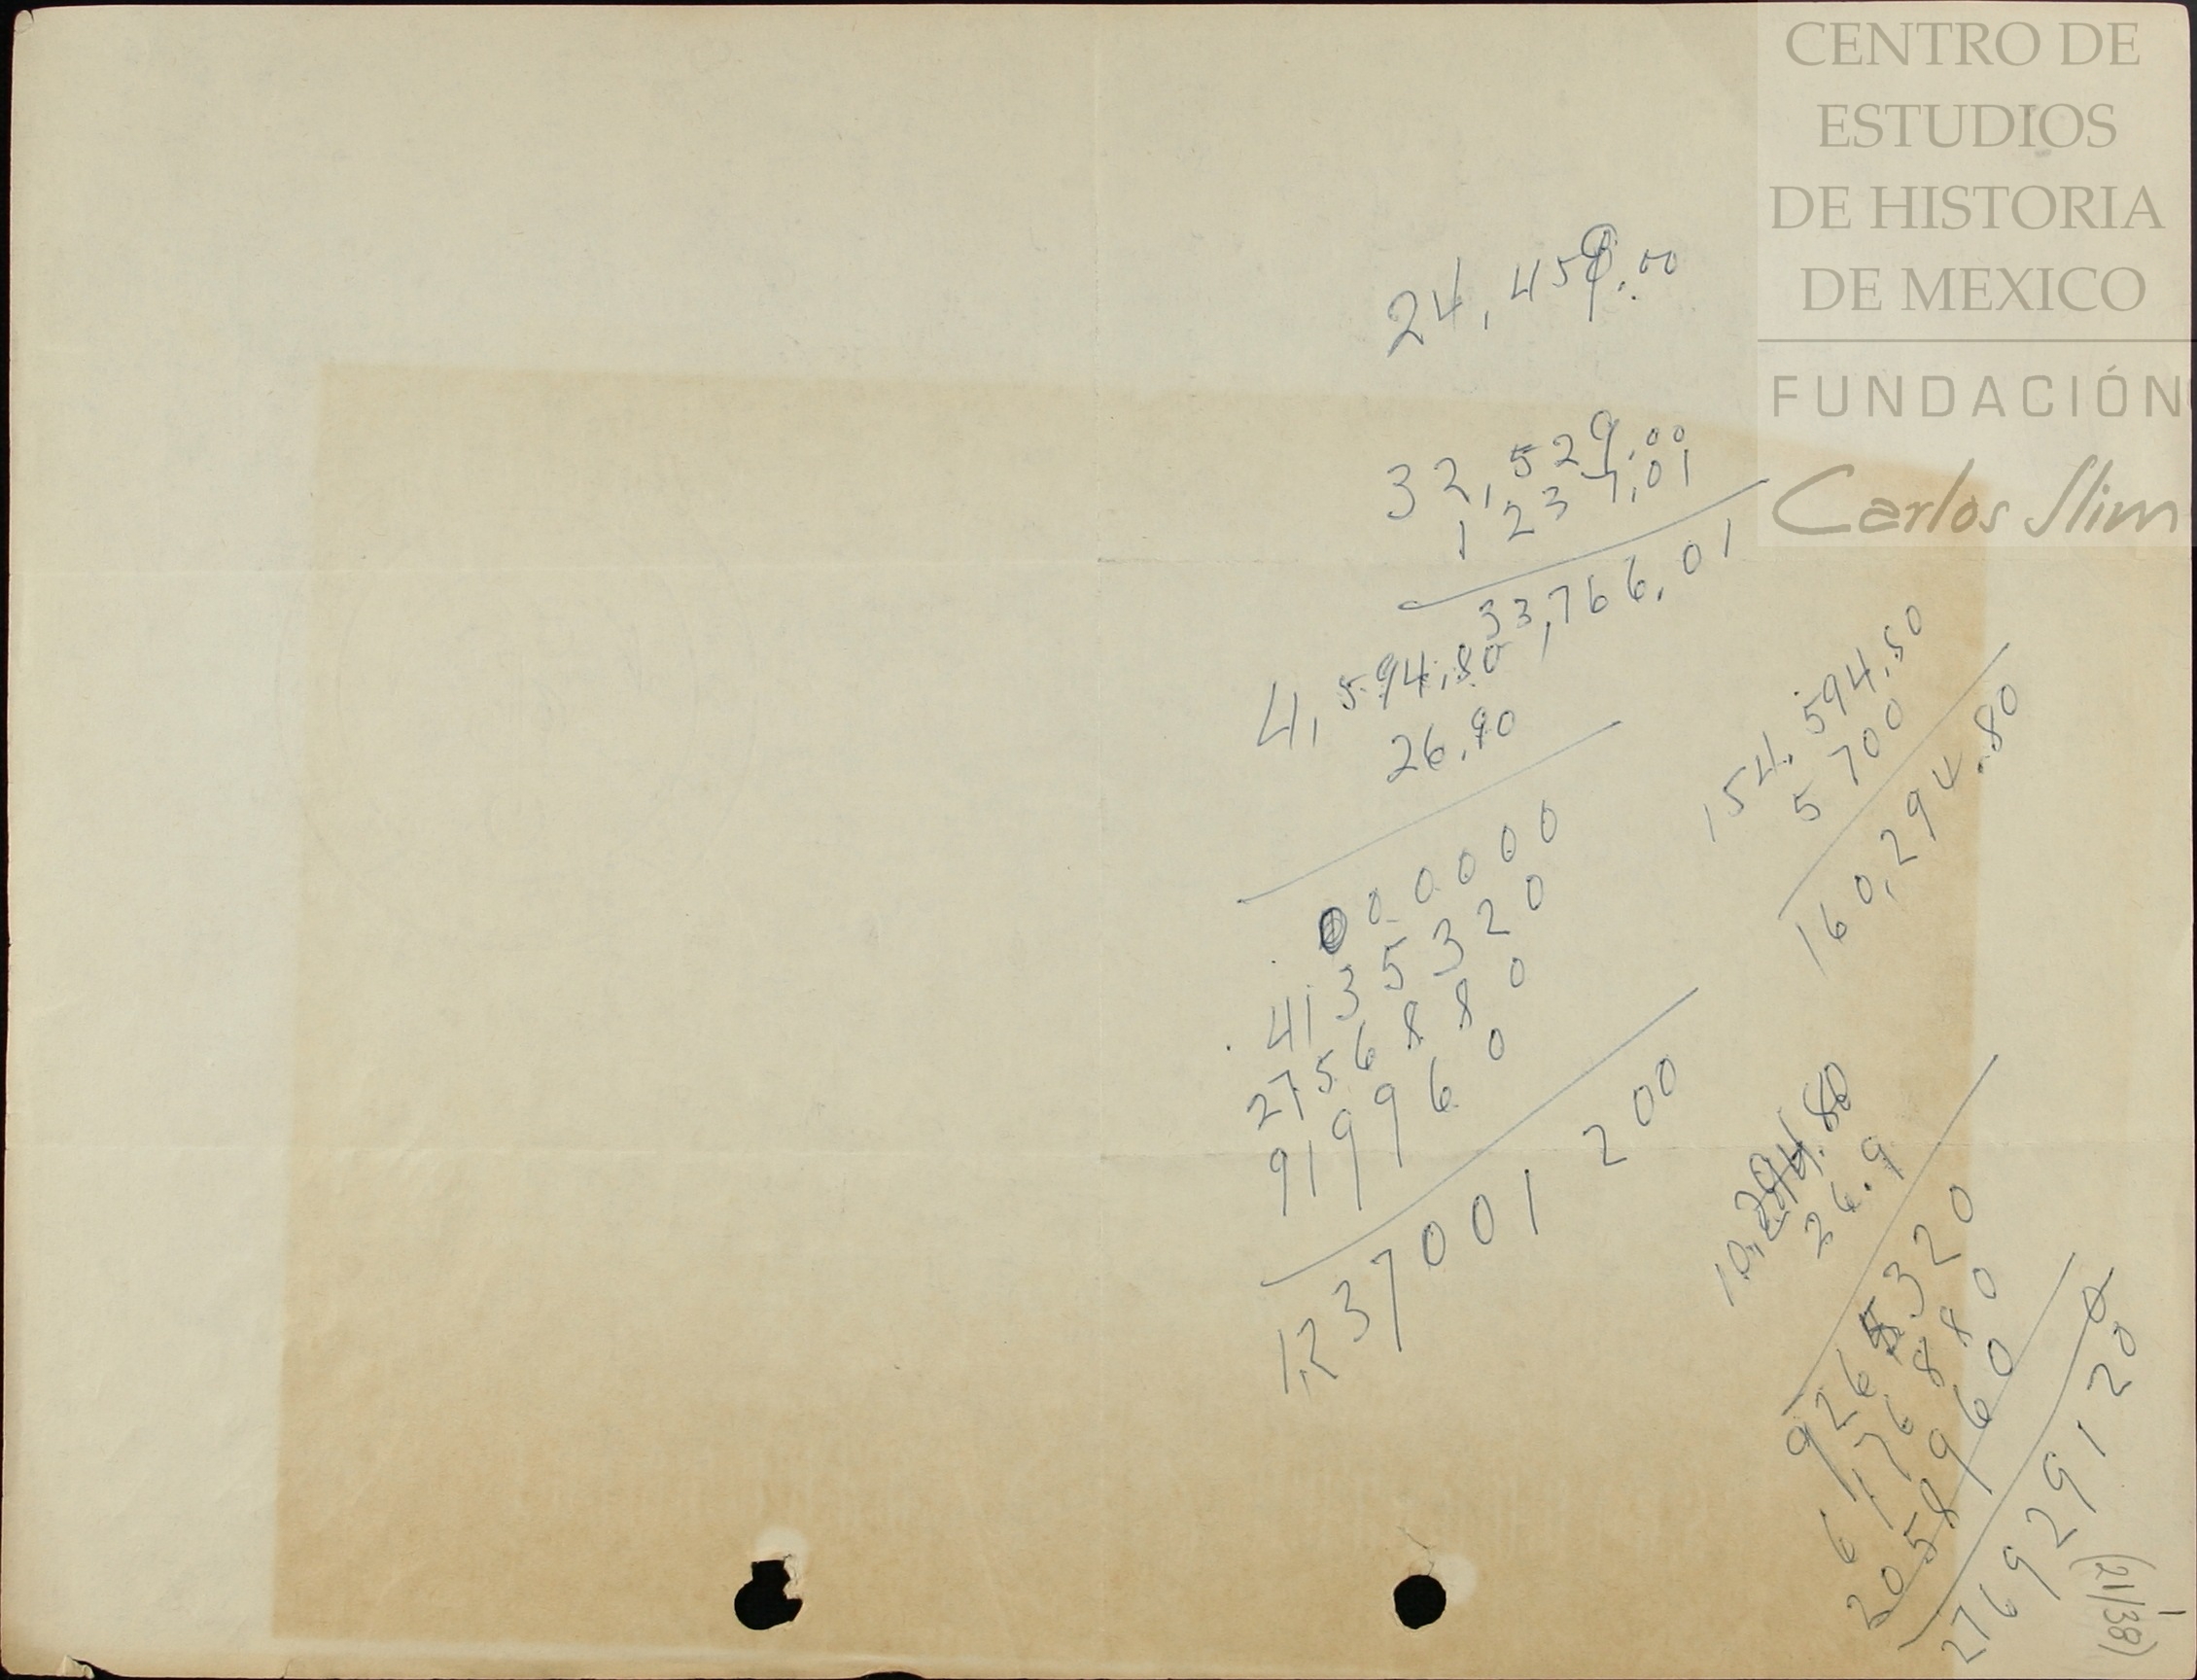 CENTRO DE
ESTUDIOS
DE HISTORIA
DE MEXICO
FUNDACIÓN
Carlos Slim
24,459.00
32,529.00
1 237.01
33,766.01
4,594.80
26.90
000000
4135320
2756880
919960
1,237001 200
154.594.80
5 700
160,294.80
10,294.80
26.9
9265320
6176880
2058960
276929120
(21/38)
1